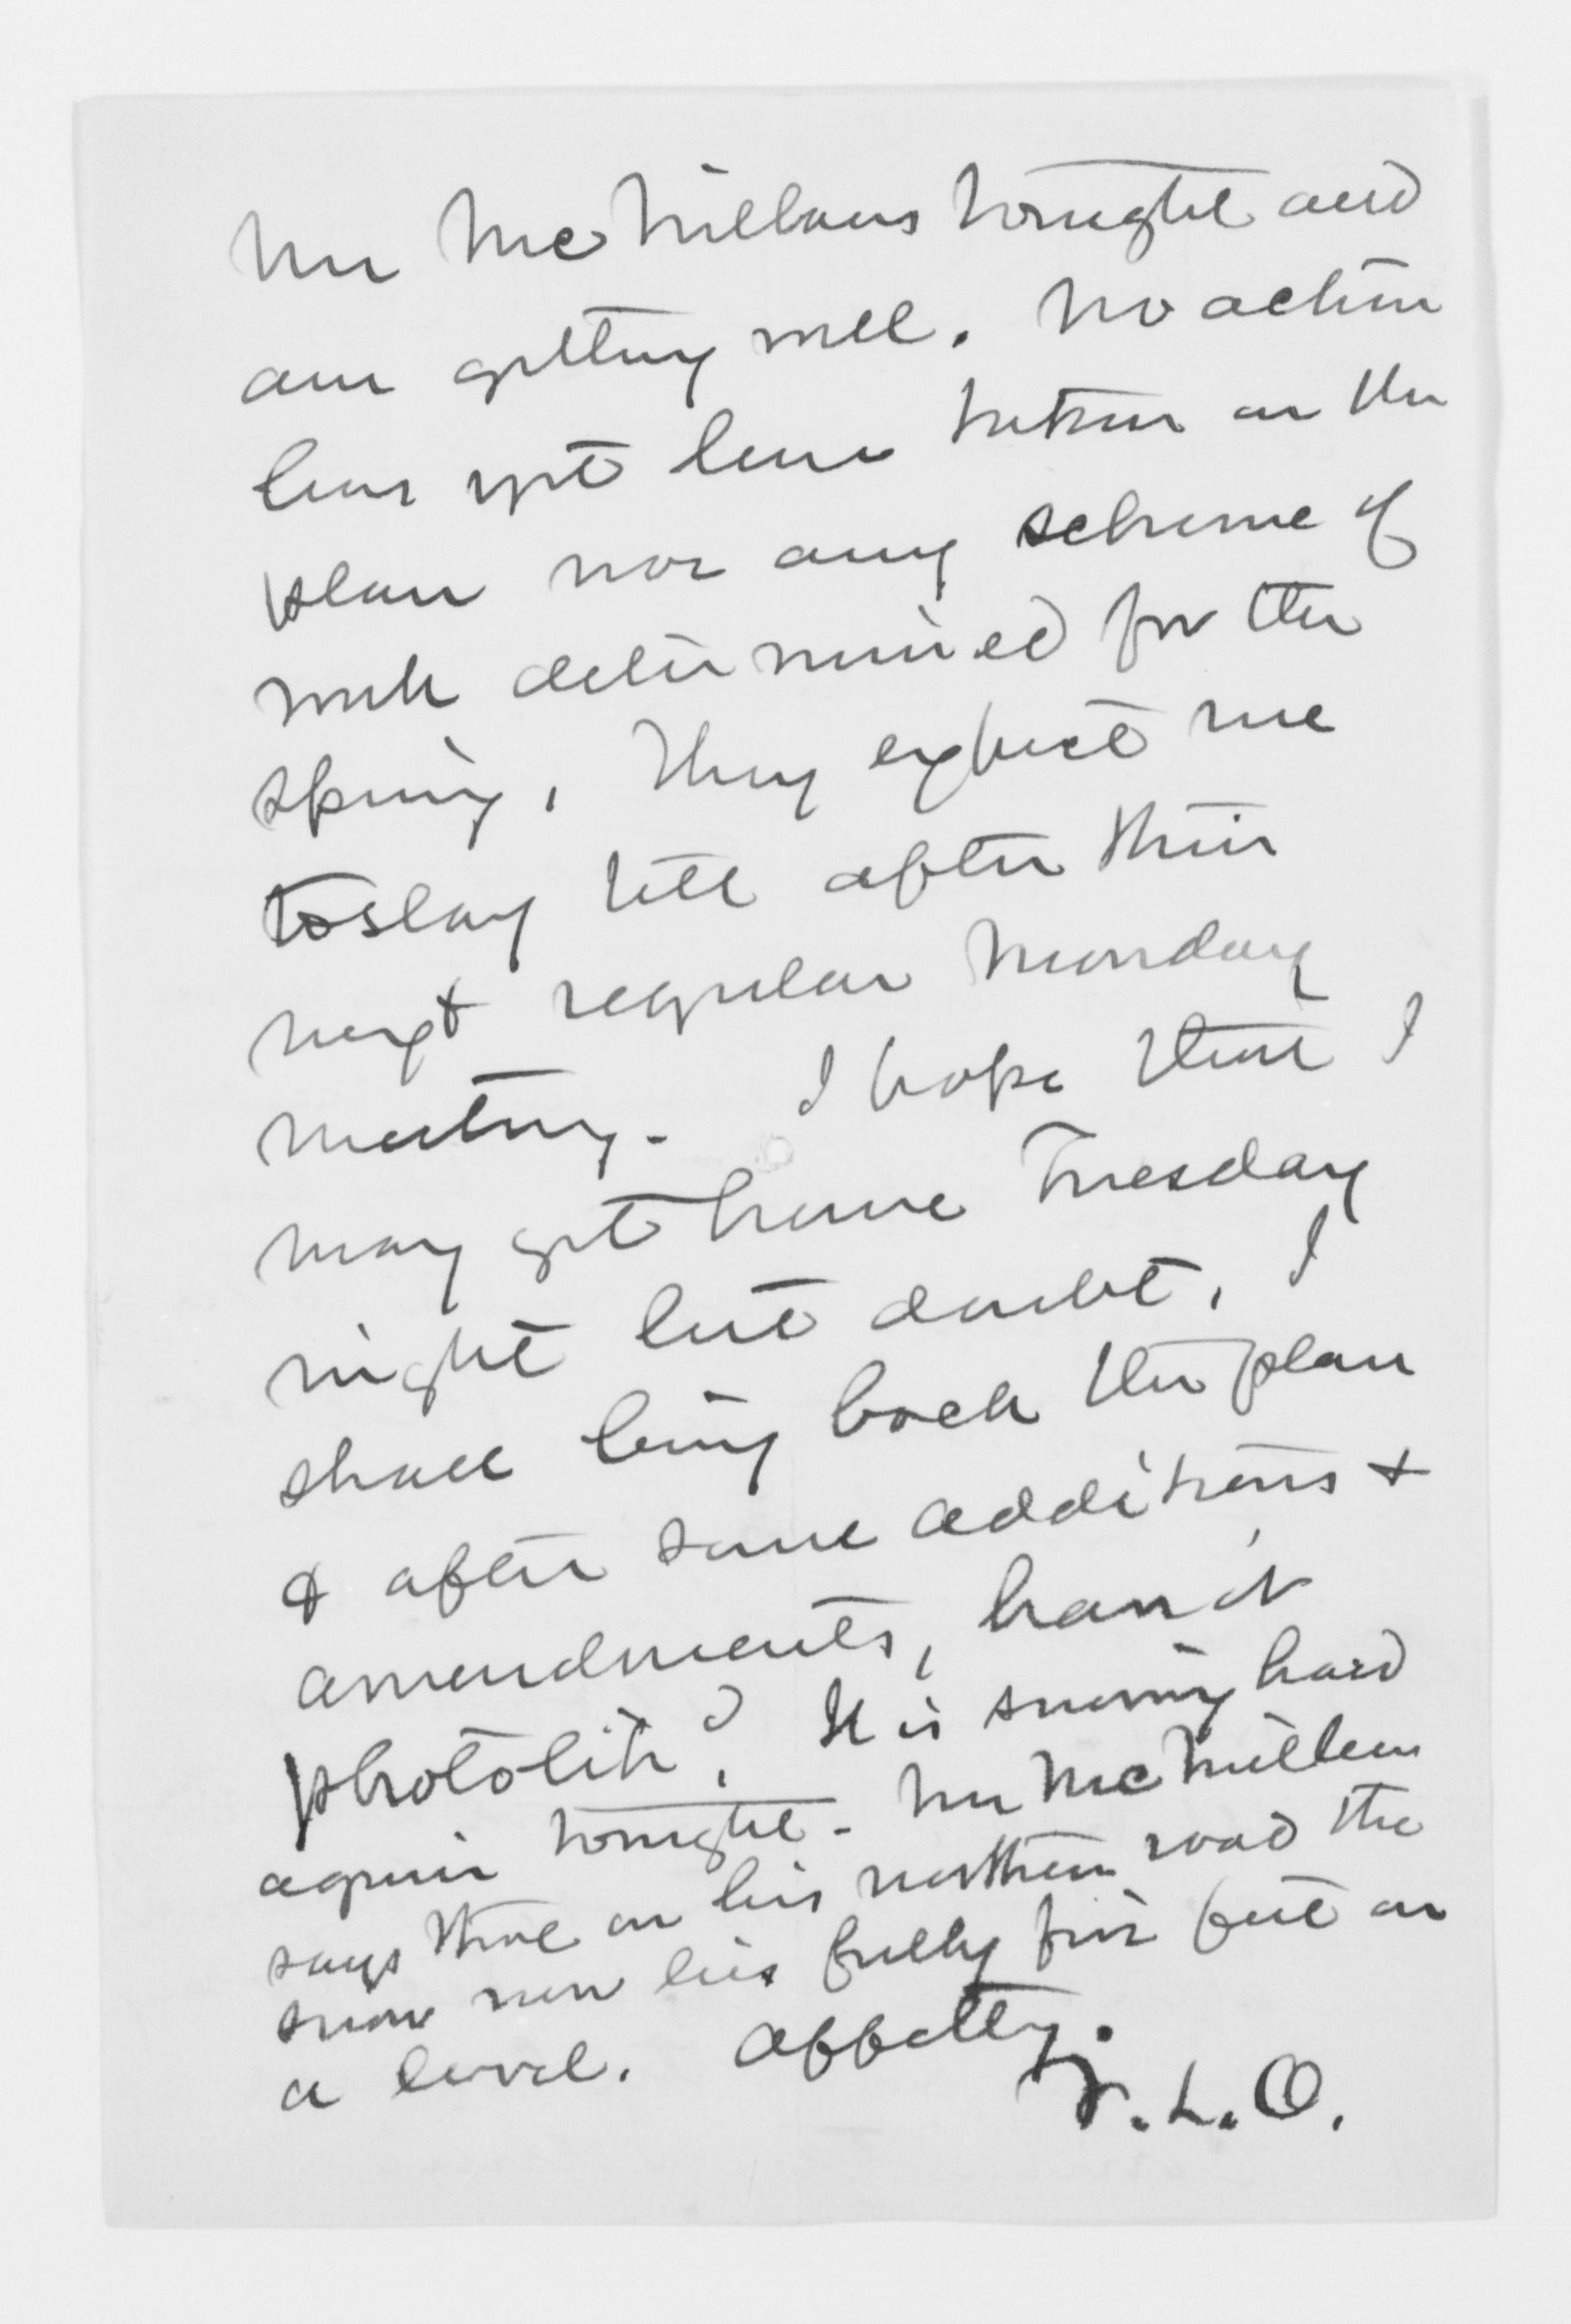 Mr McMillans tonight and
am getting well. No action
has yet been taken on the
plan nor any scheme of
work determined for the
spring. They expect me
to stay till after their
next regular Monday
meeting. I hope that I
may get home Tuesday
night but doubt. I
shall bring back the plan
& after some additions &
amendments, have it
photolith'd. It is snowing hard
again tonight. Mr McMillan
says that on his northern road the
snow now lies fully five feet on
a level. Affctly.
F.L.O.